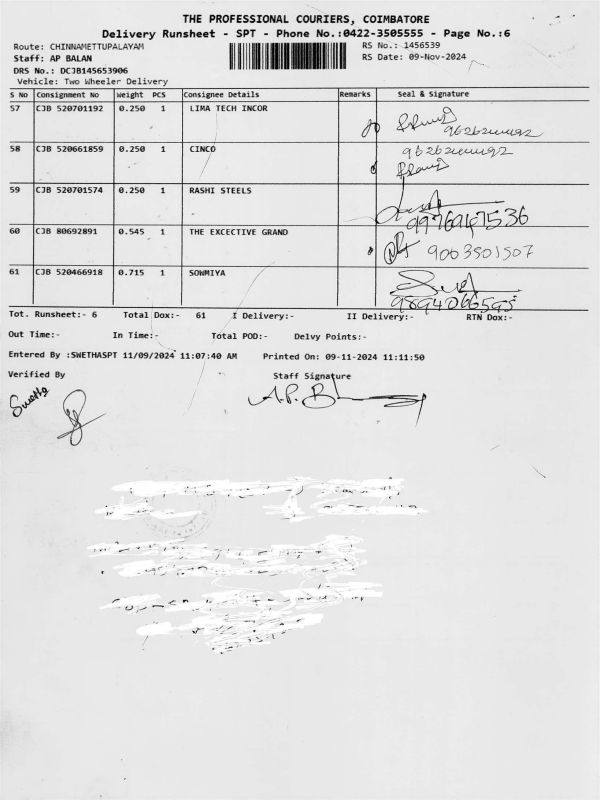 THE PROFESSIONAL COURIERS, COIMBATORE
Delivery Runsheet - SPT - Phone No.:0422-3505555 - Page No.:6
Route: CHINNAMETTUPALAYAM
RS No.: 1456539
Staff: AP BALAN
RS Date: 09-Nov-2024
DRS No.: DCJB145653906
Vehicle: Two Wheeler Delivery
S No Consignment No Weight PCS Consignee Details Remarks Seal & Signature
57 CJB 520701192 0.250 1 LIMA TECH INCOR
58 CJB 520661859 0.250 1 CINCO
59 CJB 520701574 0.250 1 RASHI STEELS
9976947536
60 CJB 80692891 0.545 1 THE EXCECTIVE GRAND
9003501507
61 CJB 520466918 0.715 1 SOWMIYA
9894066595
Tot. Runsheet:- 6 Total Dox:- 61 I Delivery:- II Delivery:- RTN Dox:-
Out Time:- In Time:- Total POD:- Delvy Points:-
Entered By :SWETHASPT 11/09/2024 11:07:40 AM Printed On: 09-11-2024 11:11:50
Verified By Staff Signature
Swetha A.P. B